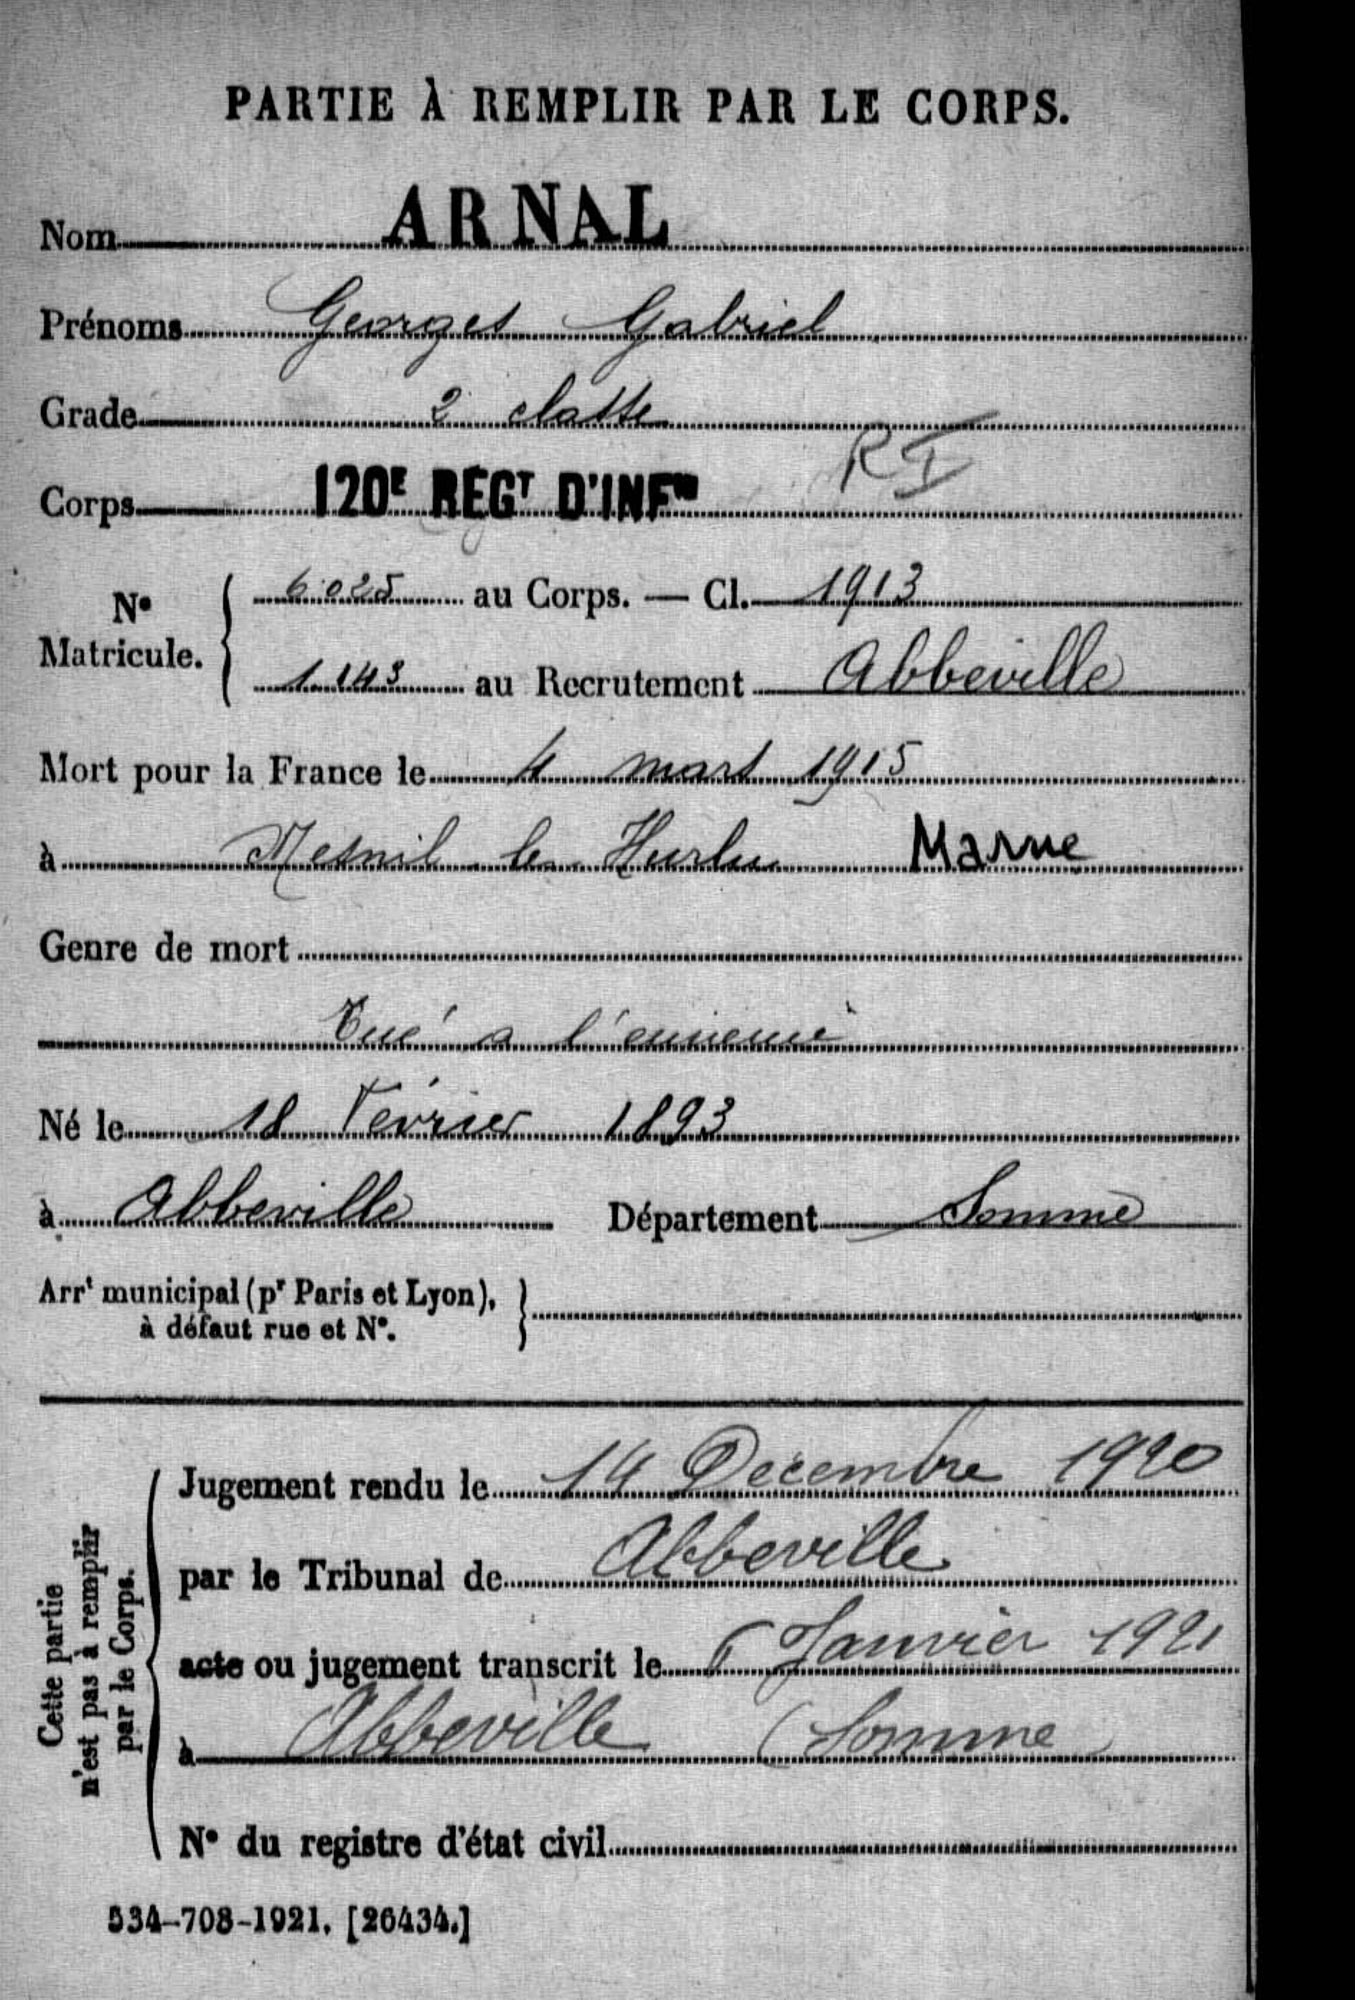 PARTIE À REMPLIR PAR LE CORPS.
Nom ARNAL
Prénoms Georges Gabriel
Grade 2 classe
R I
Corps 120E REGT D'INFie
No Matricule. { 6025 au Corps. — Cl. 1913
1143 au Recrutement Abbeville
Mort pour la France le 4 mars 1915
à Mesnil les Hurlus Marne
Genre de mort
Tué a l'ennemi
Né le 18 Février 1893
à Abbeville Département Somme
Arrt municipal (pr Paris et Lyon), }
à défaut rue et No.
Cette partie
n'est pas à remplir
par le Corps.
Jugement rendu le 14 Decembre 1920
par le Tribunal de Abbeville
acte ou jugement transcrit le Janvier 1921
à Abbeville (Somme
No du registre d'état civil
534-708-1921. [26434.]